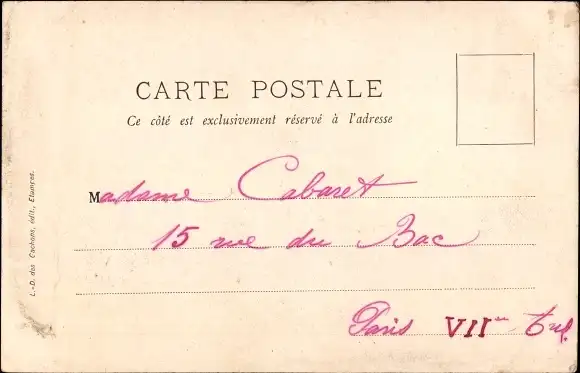 CARTE POSTALE
Ce côté est exclusivement réservé à l'adresse
Madame Cabaret
15 rue du Bac
Paris VII
L.-D. des Cachons, édit., Etampes.